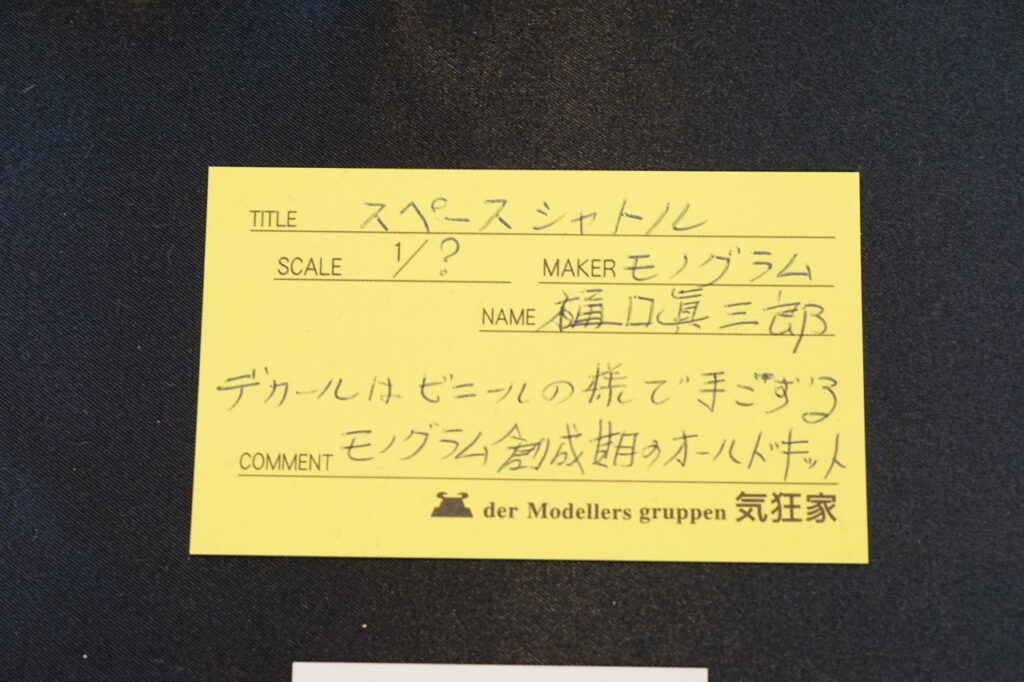 TITLE スペースシャトル
SCALE 1/? MAKER モノグラム
NAME 樋口眞三郎
デカールはビニールの様で手ごずる
COMMENT モノグラム創成期のオールドキット
der Modellers gruppen 気狂家